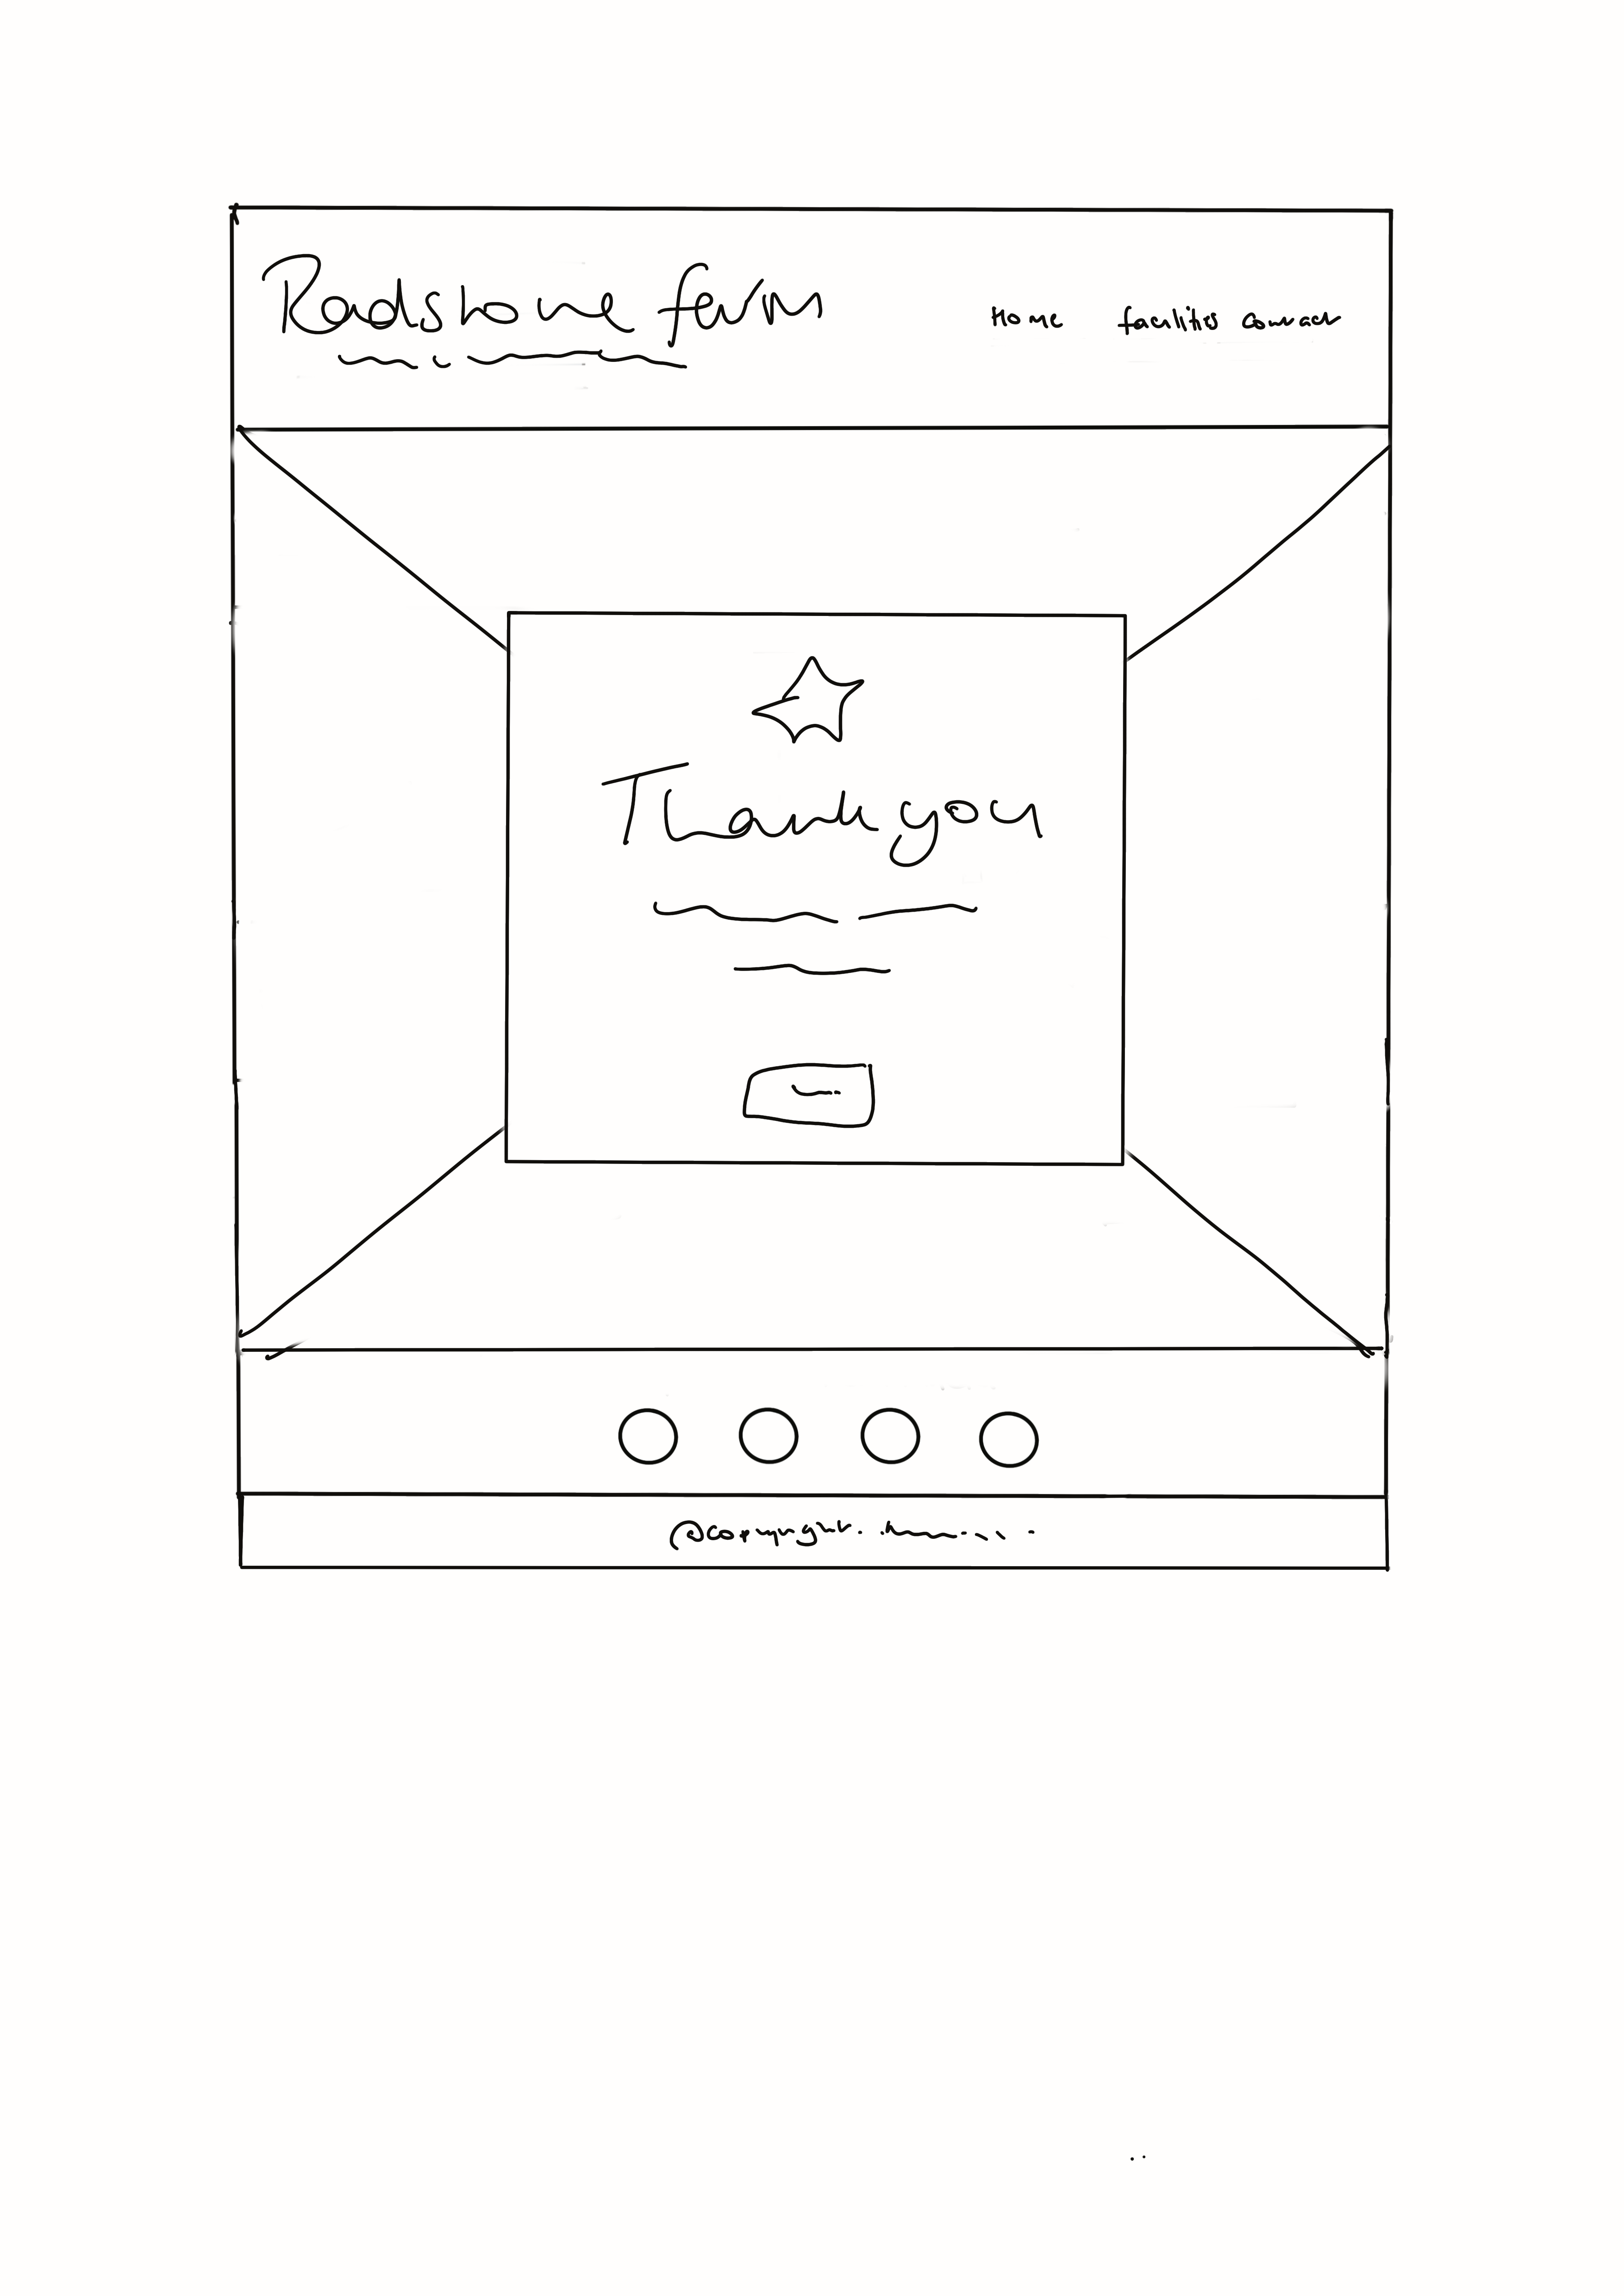 Roadstone farm
Home facilities Contact
Thank you
@copyright